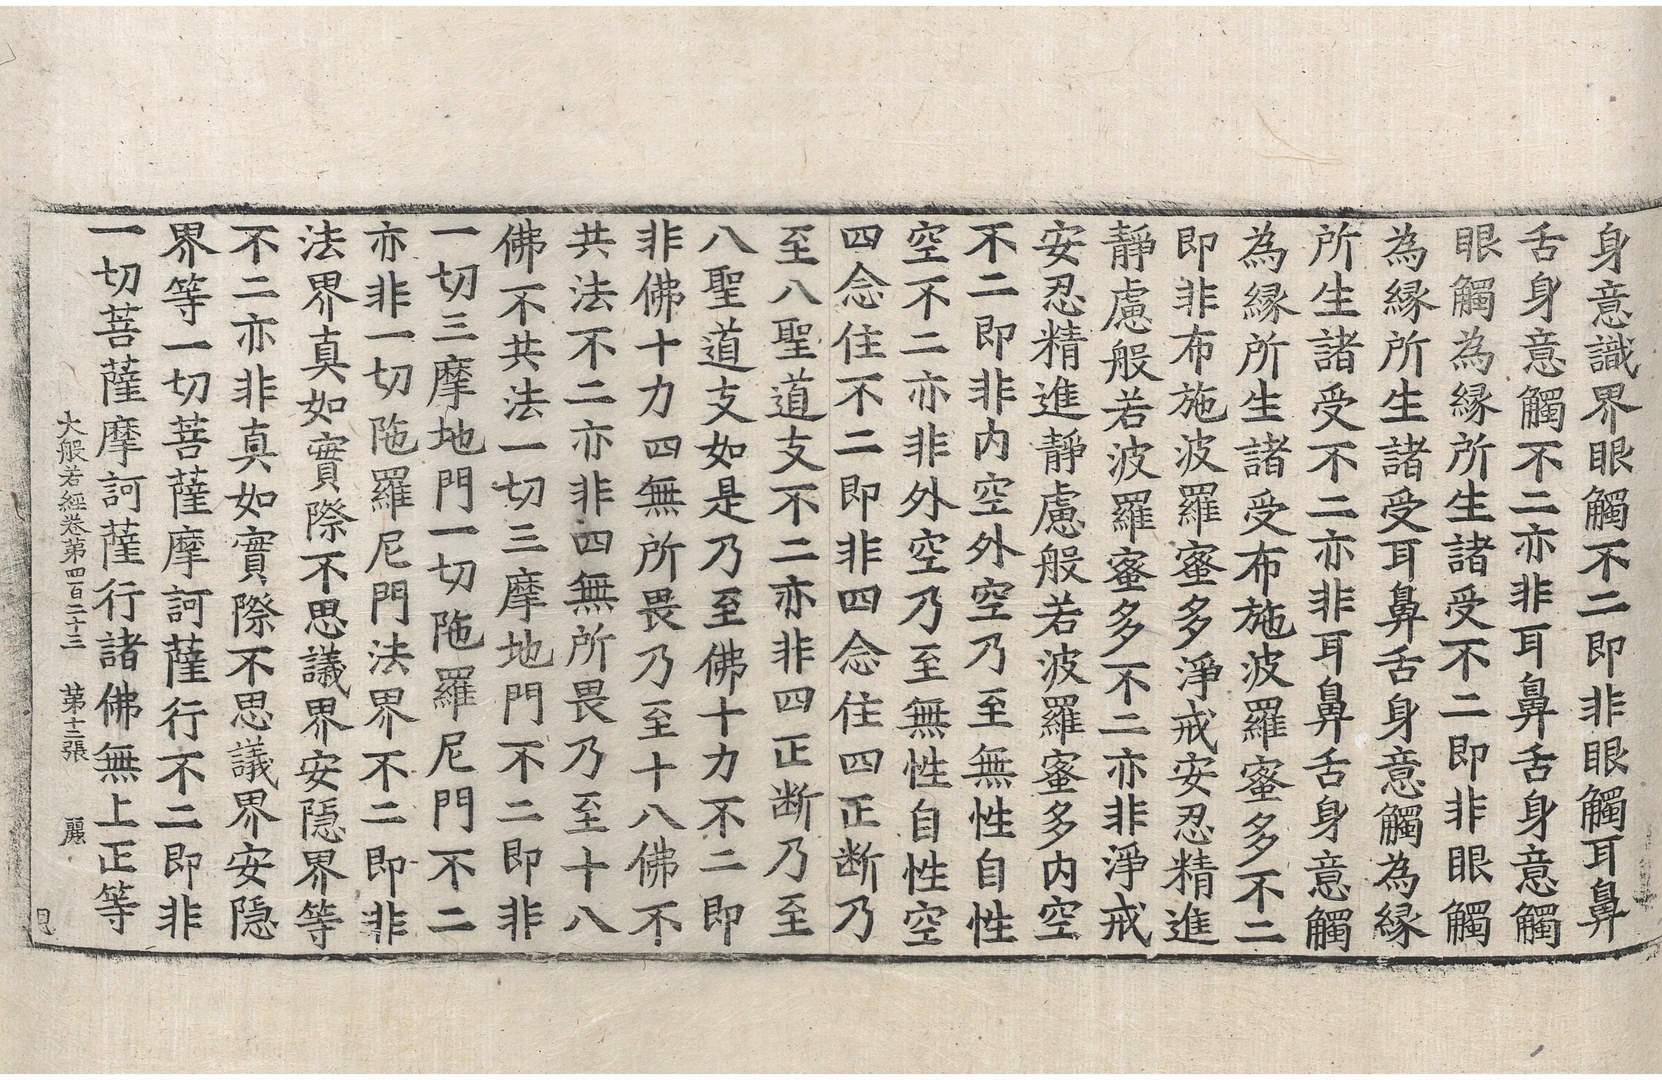 身意識界眼觸不二即非眼觸耳鼻
舌身意觸不二亦非耳鼻舌身意觸
眼觸為縁所生諸受不二即非眼觸
為縁所生諸受耳鼻舌身意觸為縁
所生諸受不二亦非耳鼻舌身意觸
為縁所生諸受布施波羅蜜多不二
即非布施波羅蜜多淨戒安忍精進
靜慮般若波羅蜜多不二亦非淨戒
安忍精進靜慮般若波羅蜜多内空
不二即非内空外空乃至無性自性
空不二亦非外空乃至無性自性空
四念住不二即非四念住四正断乃
至八聖道支不二亦非四正断乃至
八聖道支如是乃至佛十力不二即
非佛十力四無所畏乃至十八佛不
共法不二亦非四無所畏乃至十八
佛不共法一切三摩地門不二即非
一切三摩地門一切陁羅尼門不二
亦非一切陁羅尼門法界不二即非
法界真如實際不思議界安隱界等
不二亦非真如實際不思議界安隱
界等一切菩薩摩訶薩行不二即非
一切菩薩摩訶薩行諸佛無上正等
大般若經卷第四百二十三 第十三張 麗